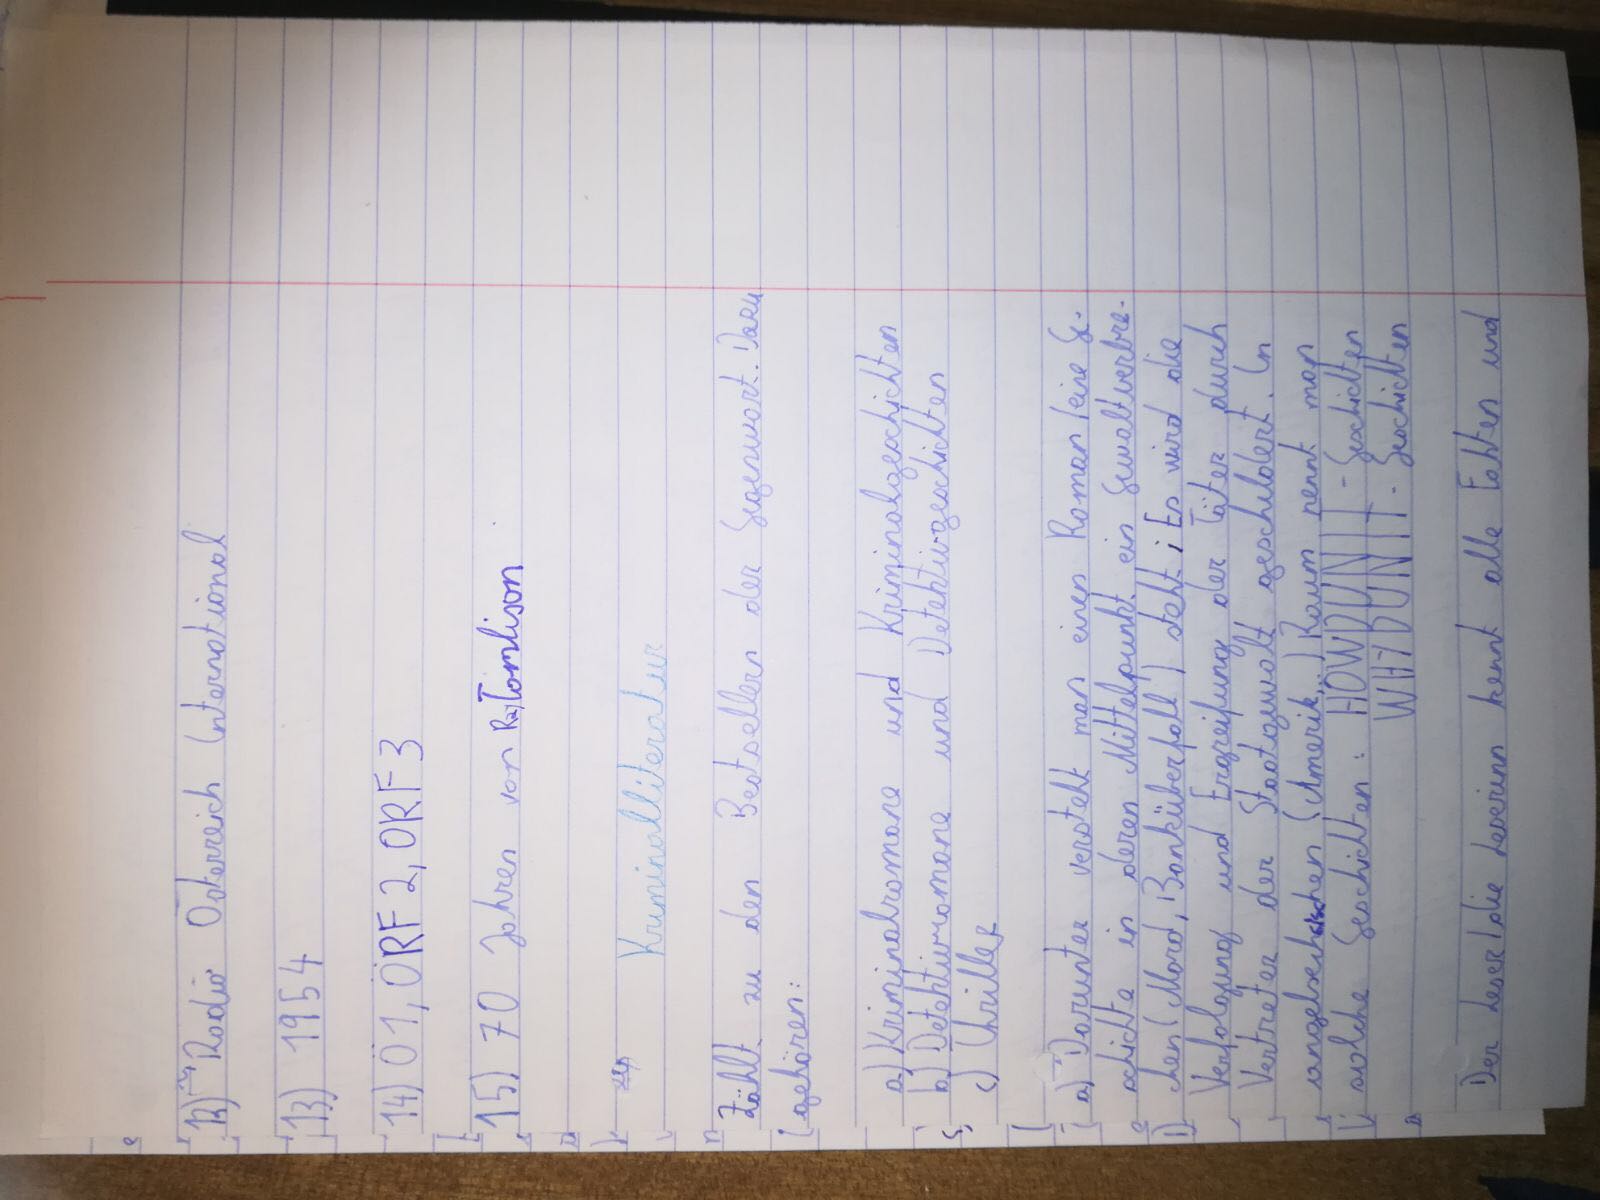 12) Radio Österreich International
13) 1954
14) Ö1, ÖRF 2, ORF 3
15) 70 Jahren von Ray Tomlison
Kriminalliteratur
Zählt zu den Bestsellern der Gegenwart. Dazu
gehören:
a) Kriminalromane und Kriminalgeschichten
b) Detektivromane und Detektivgeschichten
c) Thriller
a) Darunter versteht man einen Roman/eine Ge-
schichte in deren Mittelpunkt ein Gewaltverbre-
chen (Mord, Banküberfall) steht; Es wird die
Verfolgung und Ergreifung der Täter durch
Vertreter der Staatgewalt geschildert. In
(Amerik,..) Raum nennt man
solche Geschichten: HOWDUNIT-Geschichten
WHYDUNIT-Geschichten
Der Leser/die Leserinn kennt alle Fakten und